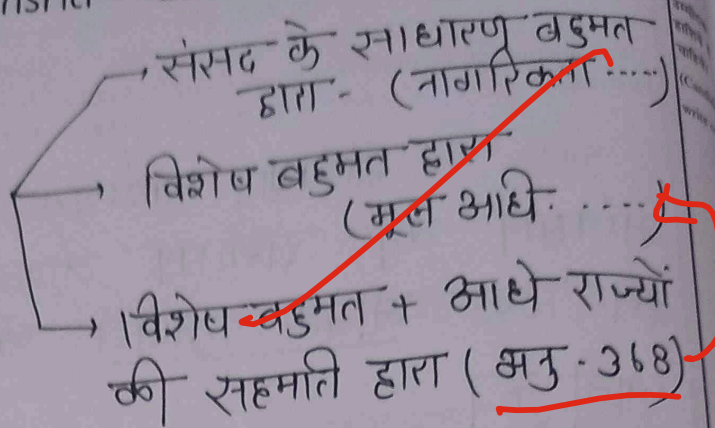 संसद के साधारण बहुमत
द्वारा - (नागरिकता .....)
विशेष बहुमत द्वारा
(मूल अधि. .....)
विशेष बहुमत + आधे राज्यों
की सहमति द्वारा (अनु - 368)